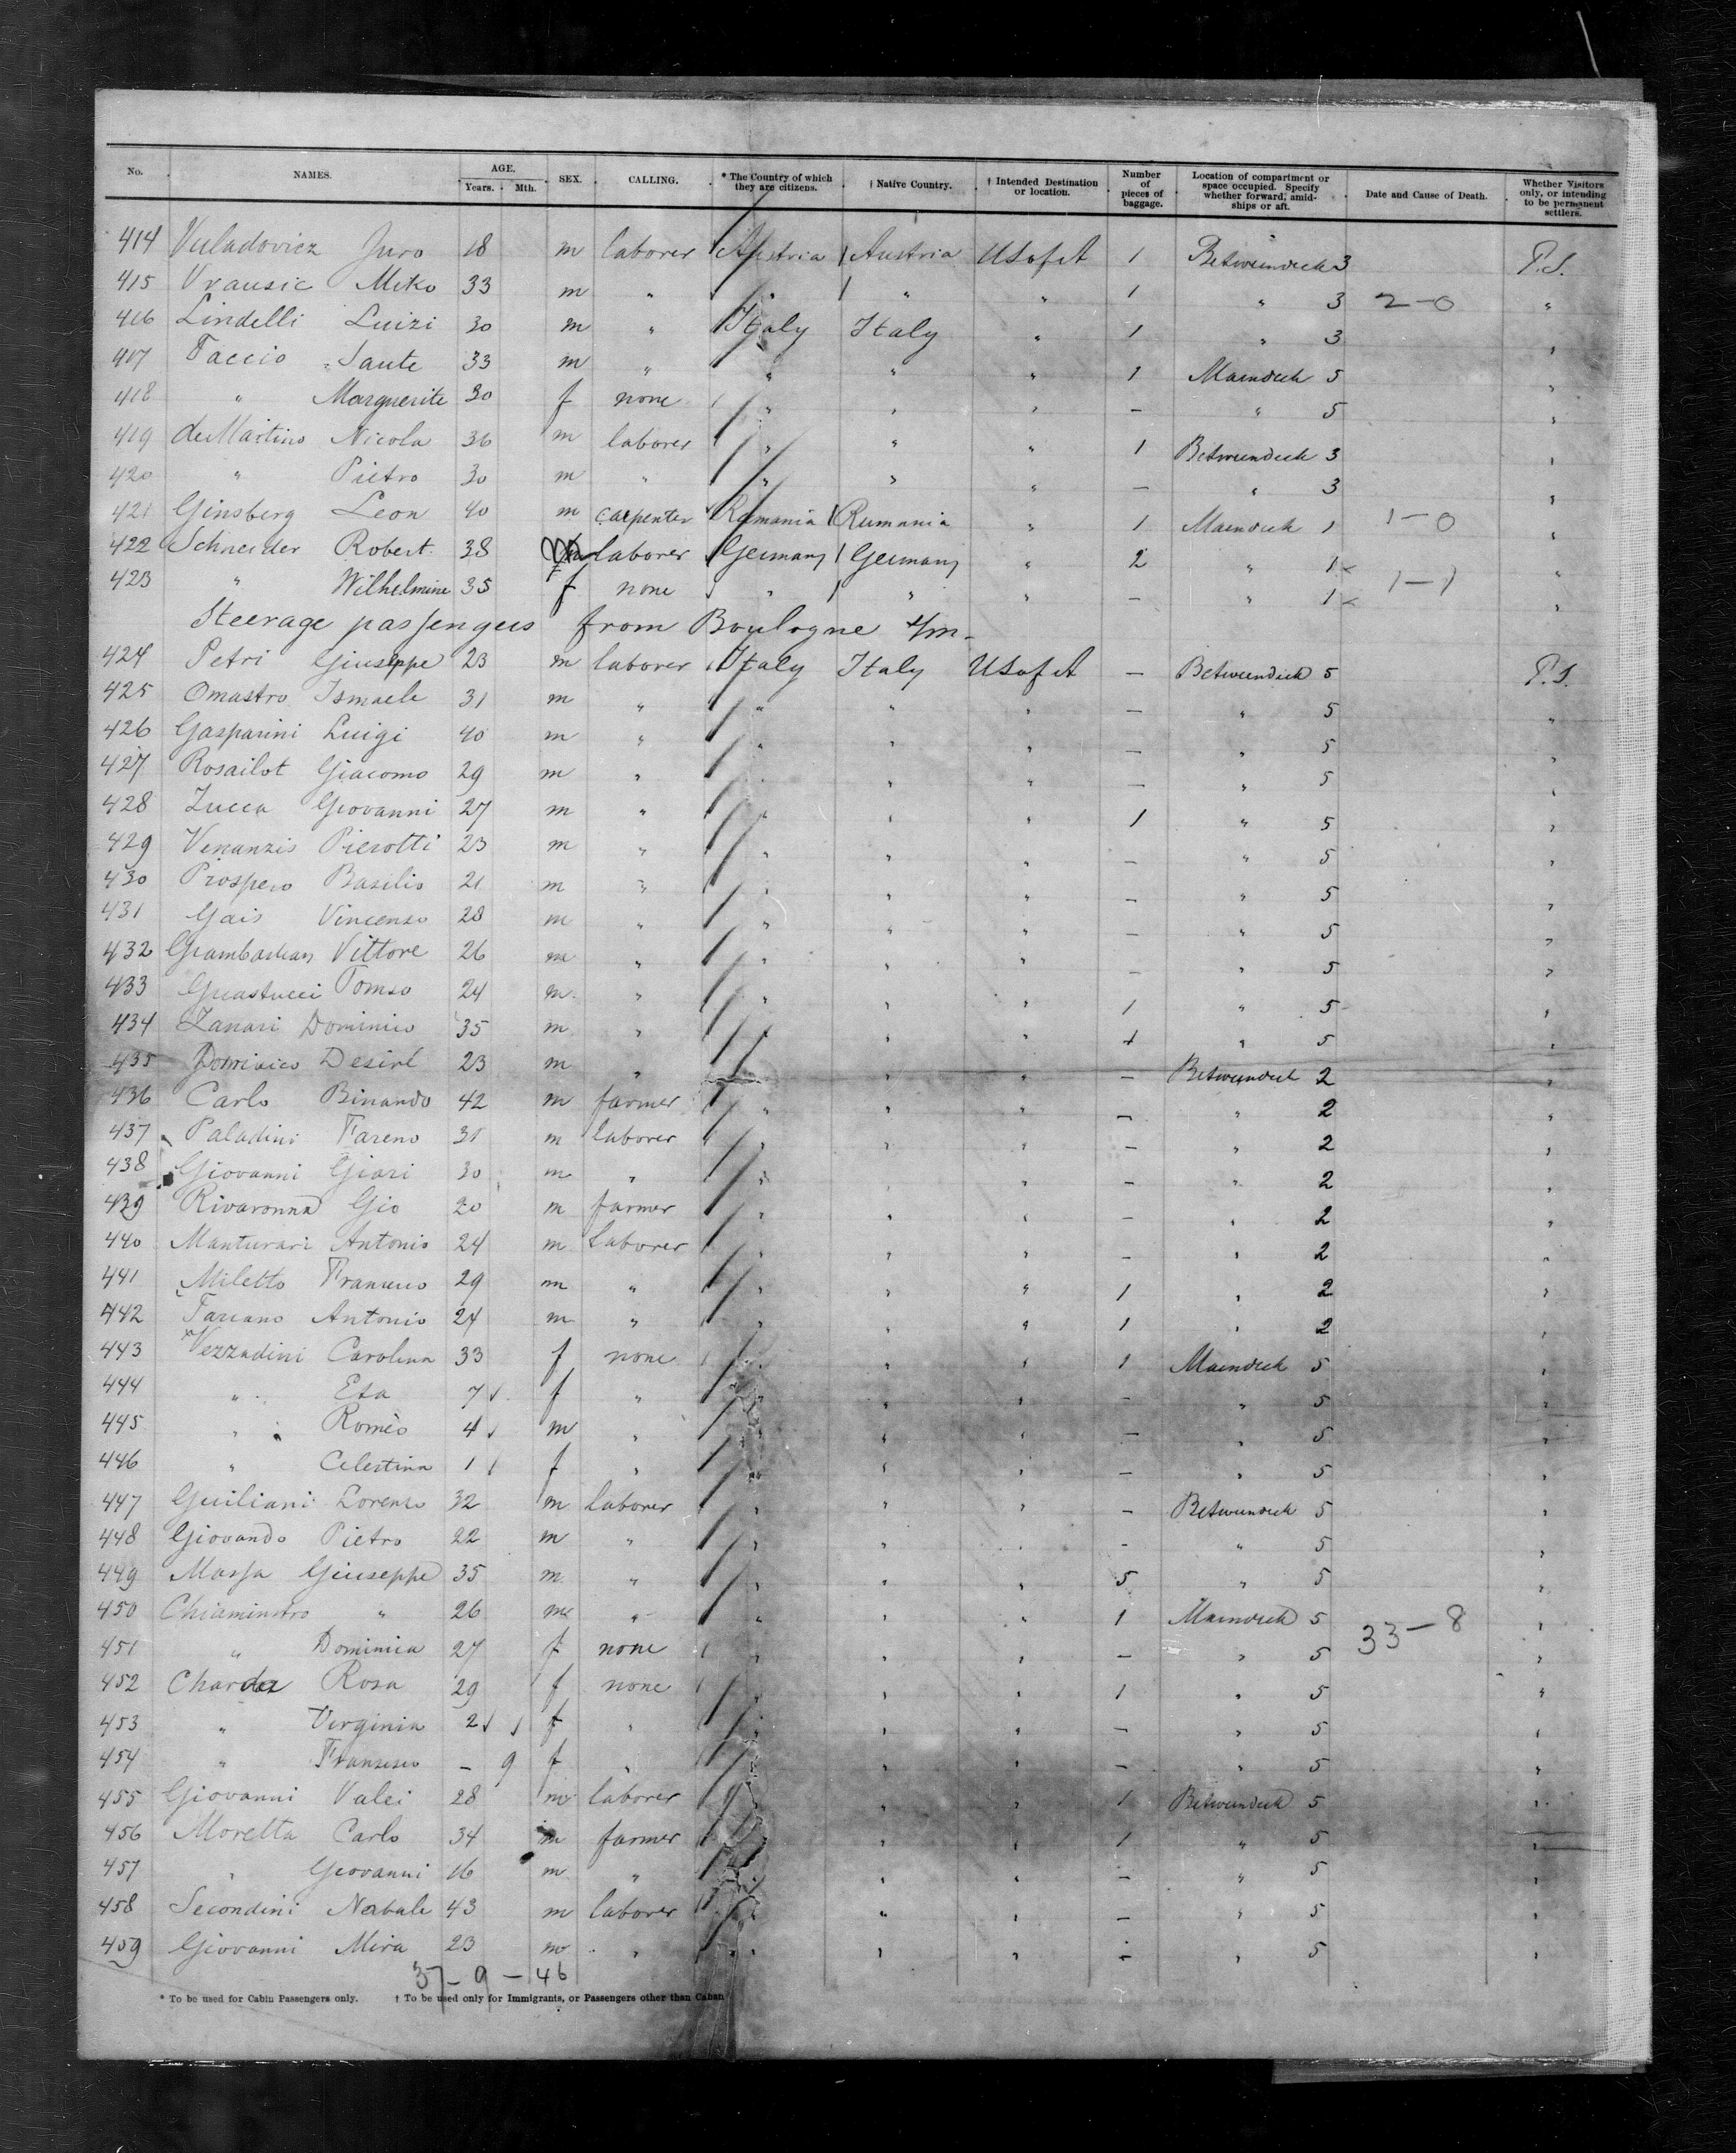 No. NAMES. AGE. Years. Mth. SEX. CALLING. * The Country of which they are citizens. † Native Country. † Intended Destination or location. Number of pieces of baggage. Location of compartment or space occupied. Specify whether forward, amidships or aft. Date and Cause of Death. Whether Visitors only, or intending to be permanent settlers.
414 Vuladovicz Juro 18 m laborer Austria Austria USofA 1 Betweendeck 3 P.S.
415 Vrausic Miko 33 m " " " " 1 " 3 2-0 "
416 Lindelli Luizi 30 m " Italy Italy " 1 " 3 "
417 Faccio Sante 33 m " " " " 1 Maindeck 5 "
418 " Marguerite 30 f none " " " – " 5 "
419 deMartino Nicola 36 m laborer " " " 1 Betweendeck 3 "
420 " Pietro 30 m " " " " – " 3 "
421 Ginsberg Leon 40 m carpenter Rumania Rumania " 1 Maindeck 1 1-0 "
422 Schneider Robert 38 laborer Germany Germany " 2 " 1 "
423 " Wilhelmine 35 f none " " " – " 1 1-1 "
Steerage passengers from Boulogne s/m
424 Petri Giuseppe 23 m laborer Italy Italy USofA – Betweendeck 5 P.S.
425 Omastro Ismaele 31 m " " " " – " 5 "
426 Gasparini Luigi 40 m " " " " – " 5 "
427 Rosailot Giacomo 29 m " " " " – " 5 "
428 Zucca Giovanni 27 m " " " " 1 " 5 "
429 Venanzis Pierotti 23 m " " " " – " 5 "
430 Prospero Basilio 21 m " " " " – " 5 "
431 Gais Vincenzo 28 m " " " " – " 5 "
432 Vittore 26 m " " " " – " 5 "
433 Guastucci Tomso 24 m " " " " 1 " 5 "
434 Zanari Dominico 35 m " " " " 1 " 5 "
435 Dominico Desirl 23 m " " " – Betweendeck 2 "
436 Carlo Binando 42 m farmer " " " – " 2 "
437 Paladini Fareno 31 m laborer " " " – " 2 "
438 Giovanni Giari 30 m " " " " – " 2 "
439 Rivaronna Gio 20 m farmer " " " – " 2 "
440 Manturari Antonio 24 m Laborer " " " – " 2 "
441 Miletto Francesco 29 m " " " " 1 " 2 "
442 Farcano Antonio 24 m " " " " 1 " 2 "
443 Vezzadini Carolina 33 f none " " " 1 Maindeck 5 "
444 " Eta 7 f " " " " – " 5 "
445 " Romèo 4 m " " " " – " 5 "
446 " Celestina 1 f " " " " – " 5 "
447 Guiliani Lorenzo 32 m laborer " " " – Betweendeck 5 "
448 Giovando Pietro 22 m " " " " – " 5 "
449 Massa Giuseppe 35 m " " " " 5 " 5 "
450 Chiaminstro " 26 m " " " " 1 Maindeck 5 33-8 "
451 " Dominica 27 f none " " " – " 5 "
452 Charda Rosa 29 f none " " " 1 " 5 "
453 " Virginia 2 f " " " " – " 5 "
454 " Francesco – 9 f " " " " – " 5 "
455 Giovanni Valei 28 m laborer " " " 1 Betweendeck 5 "
456 Moretta Carlo 34 m farmer " " " 1 " 5 "
457 " Giovanni 16 m " " " " – " 5 "
458 Secondini Nabale 43 m laborer " " " – " 5 "
459 Giovanni Mira 23 m " " " " – " 5 "
37-9-46
* To be used for Cabin Passengers only. † To be used only for Immigrants, or Passengers other than Cabin